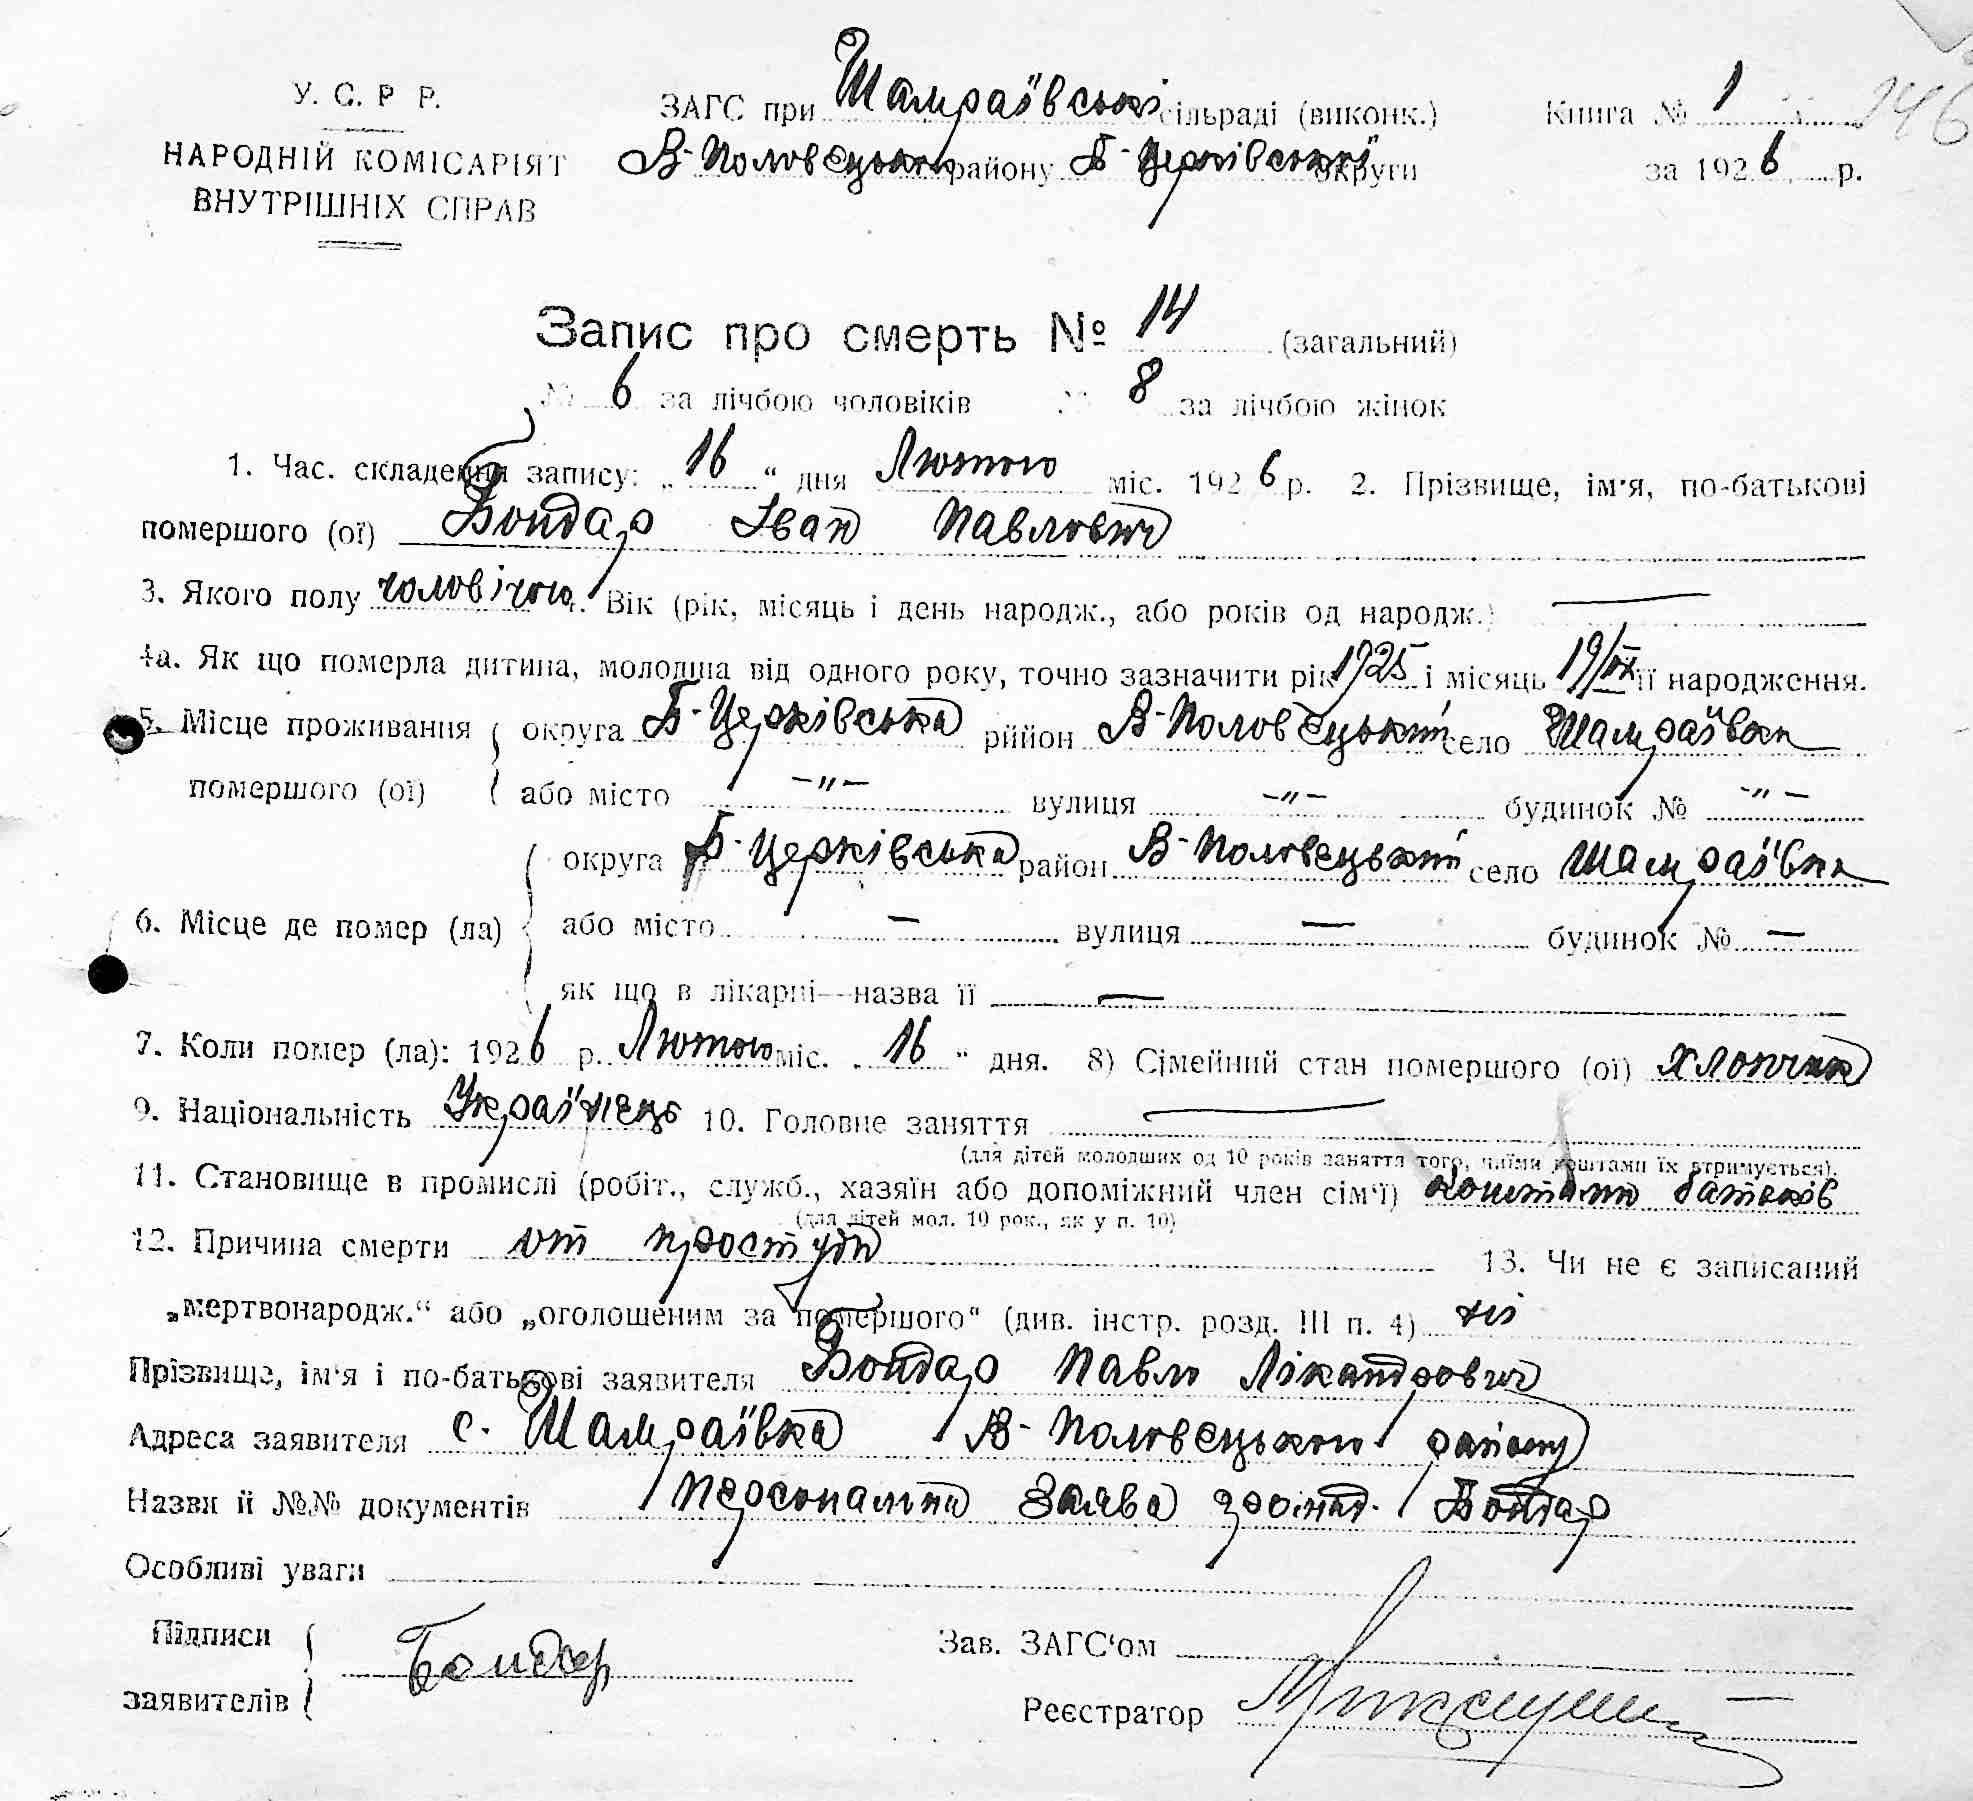 У. С. Р Р.
НАРОДНІЙ КОМІСАРІЯТ
ВНУТРІШНІХ СПРАВ
ЗАГС при Шамраївські сільраді (виконк.)
В-Половецького району Б-Церківської округи
Книга № 1
за 1926 р.
246
Запис про смерть № 14 (загальний)
№ 6 за лічбою чоловіків № 8 за лічбою жінок
1. Час. складення запису: „16“ дня Лютого міс. 1926 р. 2. Прізвище, ім'я, по-батькові
помершого (ої) Бондар Іван Павлович
3. Якого полу чоловічого. Вік (рік, місяць і день народж., або років од народж.) —
4а. Як що померла дитина, молодша від одного року, точно зазначити рік 1925 і місяць 19/IX її народження.
5. Місце проживання округа Б-Церківська рййон В-Половецький село Шамраївка
помершого (ої) або місто -„- вулиця -„- будинок № -„-
округа Б-Церківська район В-Половецький село Шамраївка
6. Місце де помер (ла) або місто — вулиця — будинок № —
як що в лікарні—назва її —
7. Коли помер (ла): 1926 р. Лютого міс. „16“ дня. 8) Сімейний стан помершого (ої) хлопчик
9. Національність Українець 10. Головне заняття —
(для дітей молодших од 10 років заняття того, чиїми коштами їх втримується).
11. Становище в промислі (робіт., служб., хазяїн або допоміжний член сім'ї) коштами батьків
(для дітей мол. 10 рок., як у п. 10)
12. Причина смерти от простуди 13. Чи не є записаний
„мертвонародж.“ або „оголошеним за помершого“ (див. інстр. розд. III п. 4) ні
Прізвище, ім'я і по-батькові заявителя Бондар Павло Лікандрович
Адреса заявителя с. Шамраївка В-Половецького району
Назви й №№ документів персональна заява громад. Бондар
Особливі уваги
Підписи
заявителів Бондар
Зав. ЗАГС'ом
Реєстратор